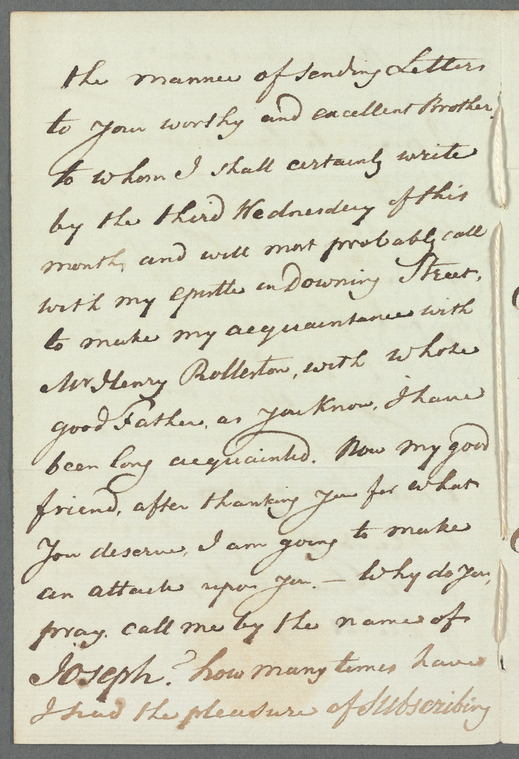 the manner of sending Letters
to your worthy and excellent Brother,
to whom I shall certainly write
by the third Wednesday of this
month, and will most probably call
with my epistle in Downing Street,
to make my acquaintance with
Mr Henry Rolleston, with whose
good Father, as you know, I have
been long acquainted. Now my good
friend, after thanking you for what
You deserve, I am going to make
an attack upon you. — Why do you,
pray, call me by the name of
Joseph? how many times have
I had the pleasure of Subscribing